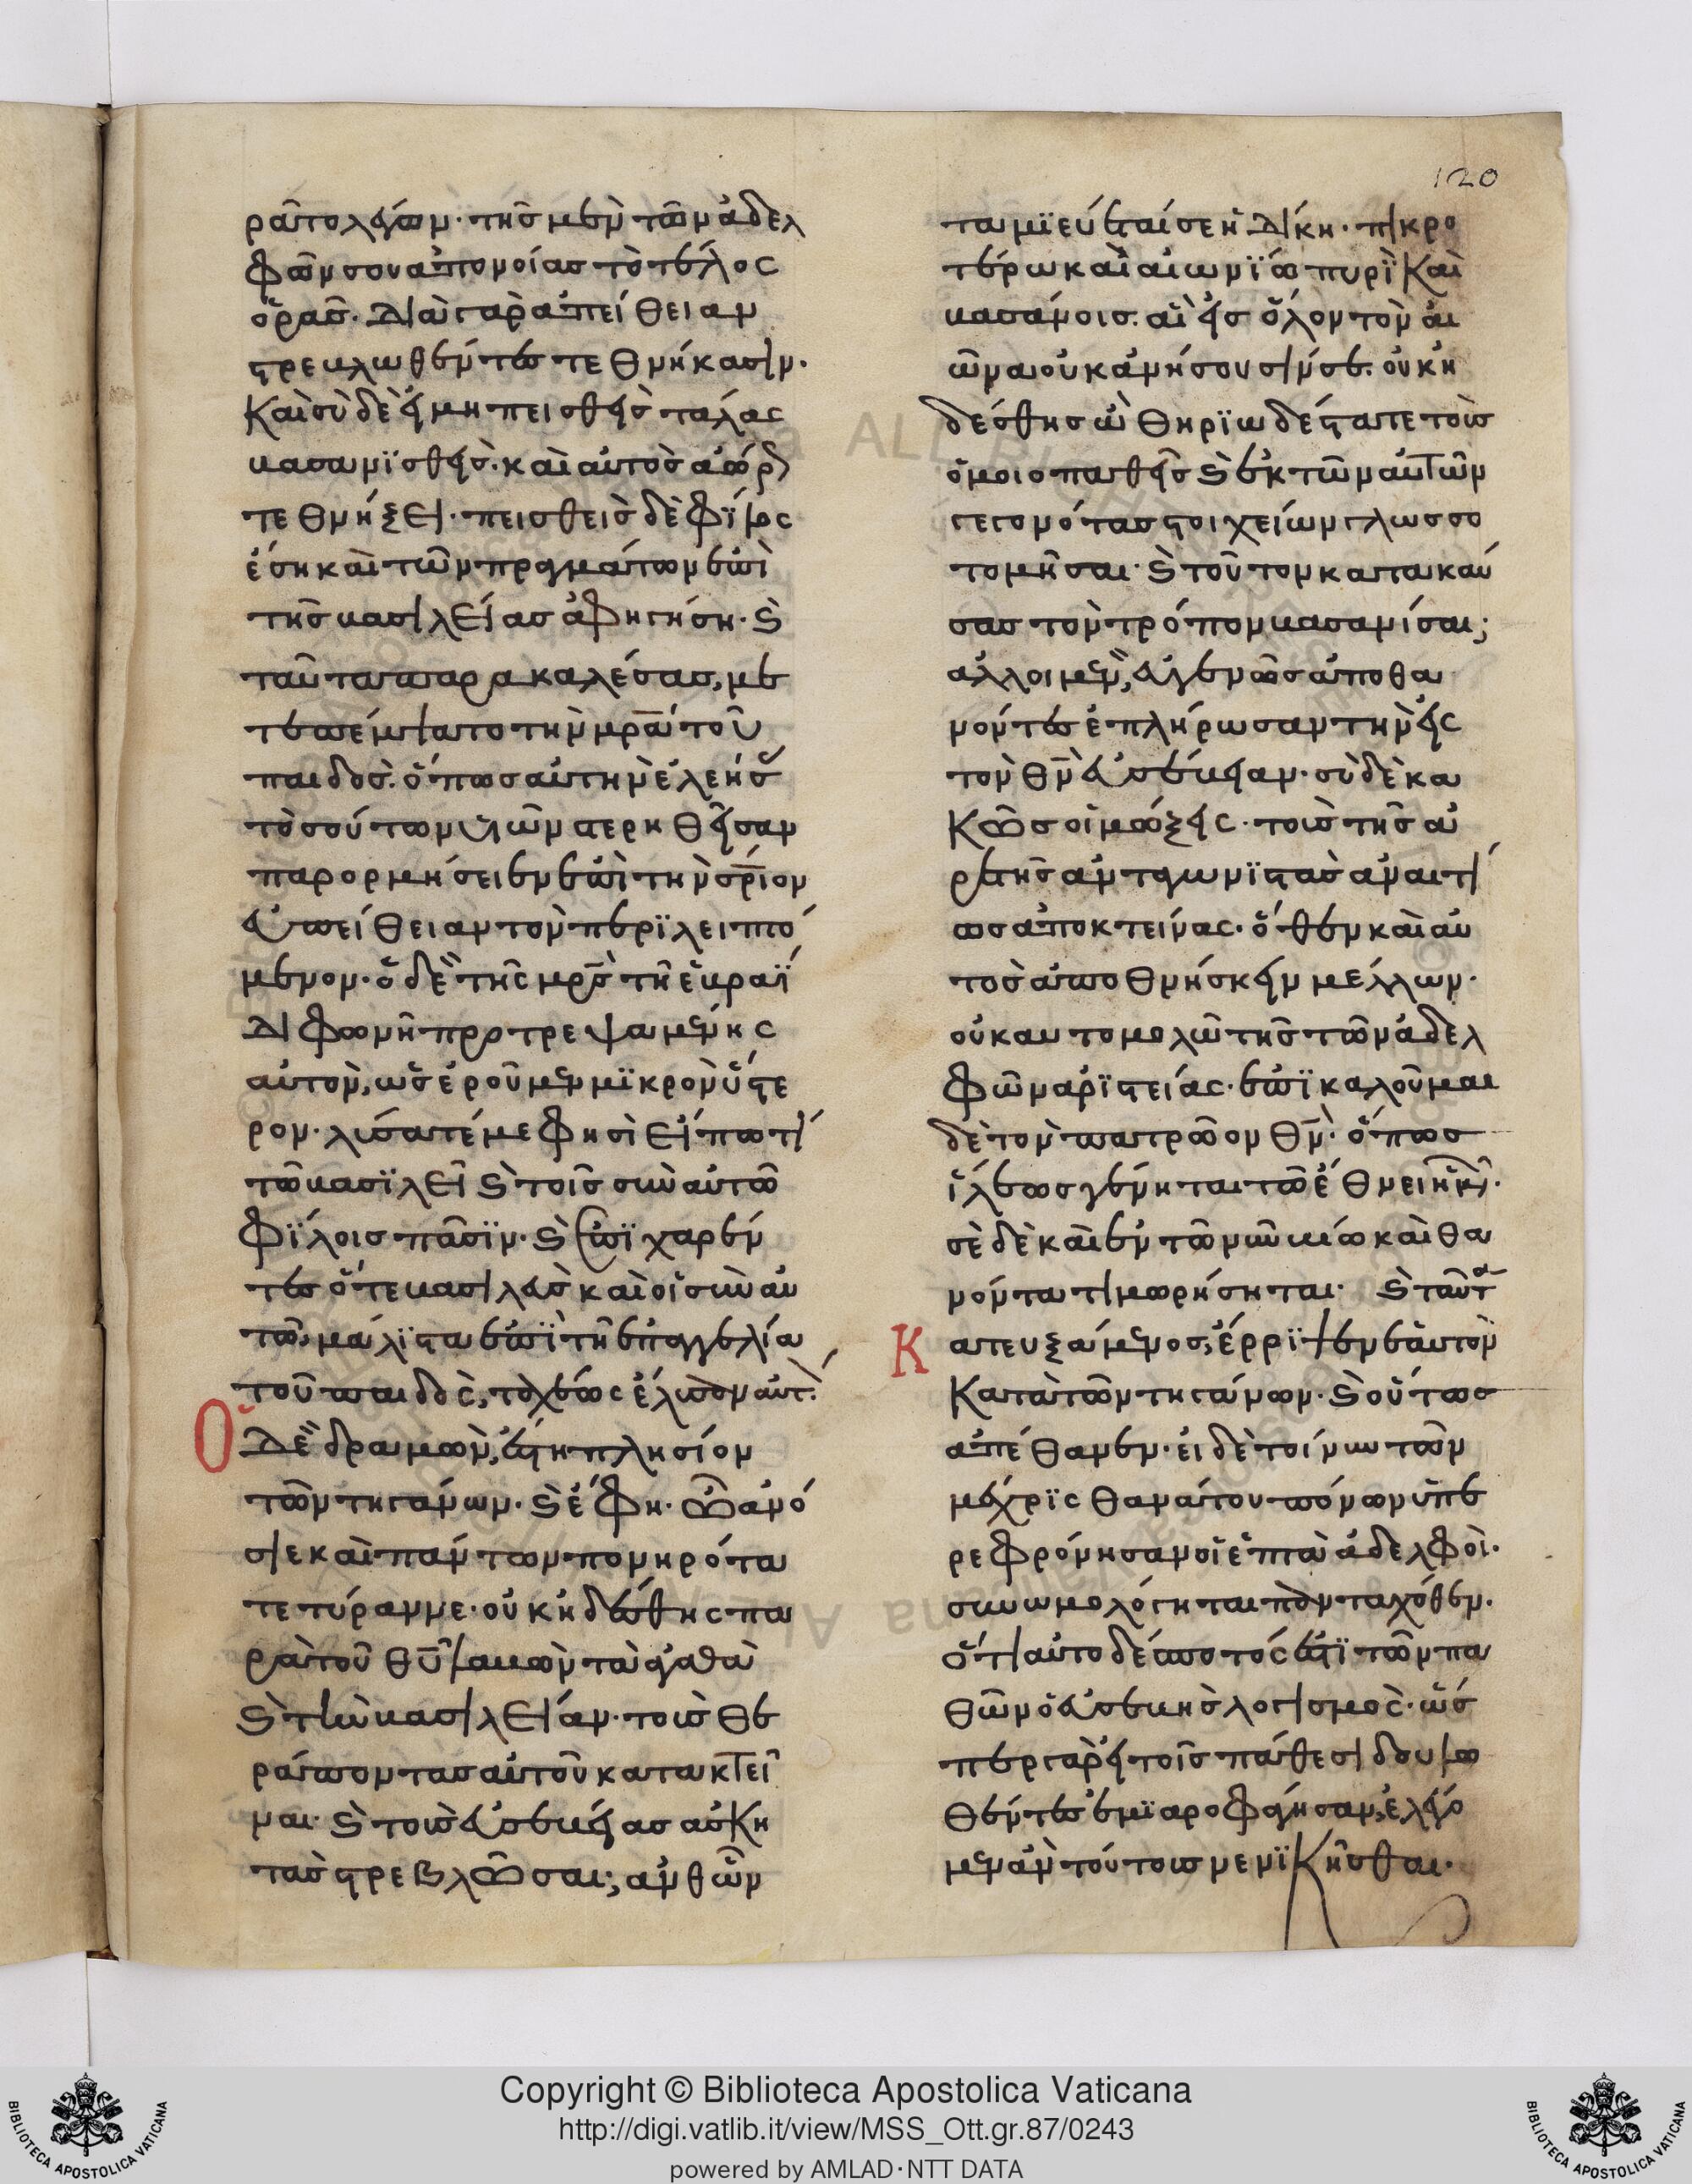 120
ρᾶτο λέγων· τῆς μὲν τῶν ἀδελ
φῶν σου ἀπονοίας τὸ τέλος
ὁρᾶς. διὰ γὰρ ἀπείθειαν
στρεβλωθέντες τεθνήκασιν.
καὶ σὺ δὲ εἰ μὴ πεισθεὶς τάλας
βασανισθεὶς. καὶ αὐτὸς
τεθνήξει· πεισθεὶς δὲ φίλος
ἔση καὶ τῶν πραγμάτων ἐπὶ
τῆς βασιλείας ἀφηγήση· καὶ
ταῦτα παρακαλέσας, με
τεπέμψατο τὴν μρα τοῦ
παιδός. ὅπως αὐτὴν ἐλεήσ
τοσούτων υἱῶν στερηθεῖσαν
παρορμήσειεν ἐπὶ τὴν σριον
εὐπείθειαν τὸν περιλειπό
μενον· ὁ δὲ τῆς μρς τῇ ἑβραΐ
δι φωνῇ προτρεψαμένης
αὐτὸν, ὡς ἐροῦμεν μικρὸν ὕστε
ρον· λύσατέ με φησὶ εἴπω τι
τῶ βασιλεῖ καὶ τοῖς σὺν αὐτῶ
φίλοις πᾶσιν· καὶ ἐπιχαρέν
τες ὅτε βασιλεὺς καὶ οἱ σὺν αὐ
τῶ, μάλιστα ἐπὶ τῇ ἐπαγγελία
τοῦ παιδὸς, ταχέως ἔλυσον αὐτ.
Ὁ δὲ δραμὼν, ἔστη πλησίον
τῶν τηγάνων· καὶ ἔφη· ὦ ἀνό
σιε καὶ πάντων πονηρότα
τε τύραννε· οὐκ ἠδέσθης πα
ρὰ τοῦ θυ λαβὼν τὰ ἀγαθὰ
καὶ τὴν βασιλείαν· τοὺς θε
ράποντας αὐτοῦ κατακτεῖ
ναι· καὶ τοὺς εὐσεβείας ἀσκη
τὰς στρεβλῶσαι; ἀνθῶν
ταμιεύεταί σε ἡ δίκη· πικρο
τέρω καὶ αἰωνίω πυρὶ καὶ
βασάνοις. αἳ εἰς ὅλον τὸν αἰ
ῶνα οὐκ ἀνήσουσίν σε. οὐκ ἠ
δέσθης ὢ θηριωδέστατε τοὺς
ὁμοιοπαθεῖς καὶ ἐκ τῶν αὐτῶν
γεγονότας στοιχείων γλωσσο
τομῆσαι· καὶ τοῦτον κατακαύ
σας τὸν τρόπον βασανίσαι;
ἀλλ οἱ μὲν, εὐγενῶς ἀποθα
νόντες ἐπλήρωσαν τὴν εἰς
τὸν θν εὐσέβειαν· σὺ δὲ κα
κῶς οἰμώξεις· τοὺς τῆς ἀ
ρετῆς ἀγωνιστὰς ἀναιτί
ως ἀποκτείνας· ὅθεν καὶ αὐ
τὸς ἀποθνήσκειν μέλλων·
οὐκ αὐτομολῶ τῆς τῶν ἀδελ
φῶν ἀριστείας· ἐπικαλοῦμαι
δὲ τὸν πατρῶον θν· ὅπως
ἵλεως γένηται τῶ ἔθνει ἡμῶν.
σὲ δὲ καὶ ἐν τῶ νῦν βίω καὶ θα
νόντα τιμωρήσηται· καὶ ταῦτα
κατευξάμενος, ἔρριψεν ἑαυτὸν
κατὰ τῶν τηγάνων· καὶ οὕτως
ἀπέθανεν· εἰ δὲ τοίνυν τῶν
μέχρις θανάτου πόνων ὑπε
ρεφρόνησαν οἱ ἑπτὰ ἀδελφοί·
συνωμολόγηται πανταχόθεν·
ὅτι αὐτοδέσποτός ἐστι τῶν πα
θῶν ὁ εὐσεβὴς λογισμός· ὥσ
περ γὰρ εἰ τοῖς πάθεσι δουλω
θέντες ἐμιαροφάγησαν, ἐλέγο
μεν ἂν τούτοις νενικῆσθαι·
BIBLIOTECA APOSTOLICA VATICANA
Copyright © Biblioteca Apostolica Vaticana
http://digi.vatlib.it/view/MSS_Ott.gr.87/0243
powered by AMLAD·NTT DATA
BIBLIOTECA APOSTOLICA VATICANA